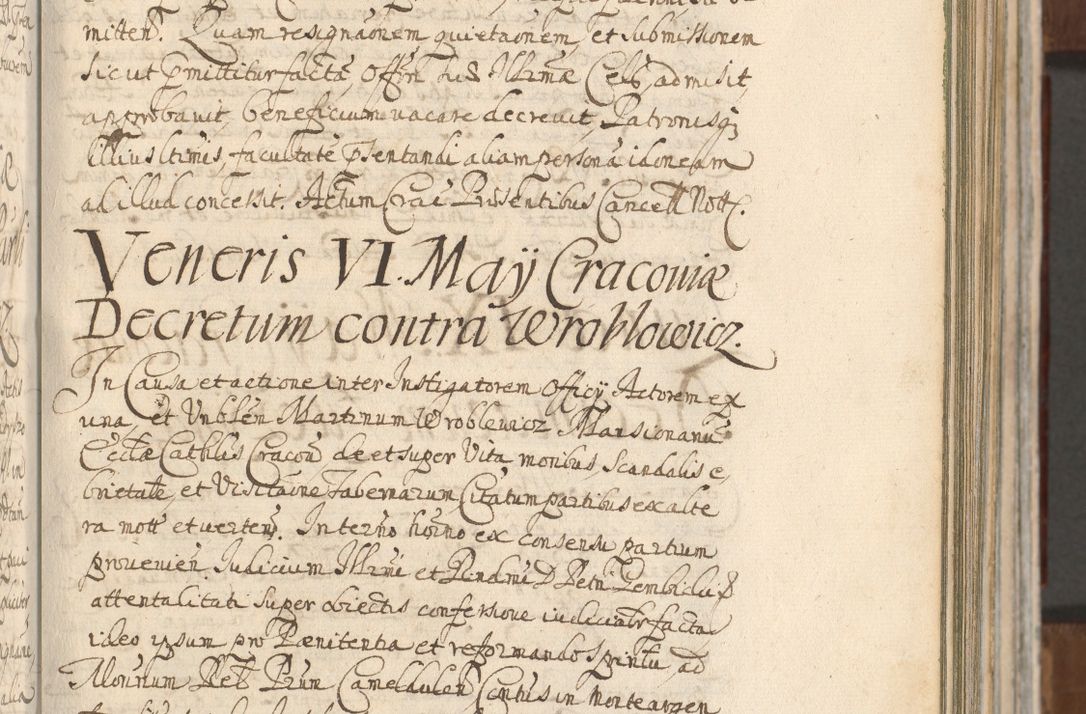 mitten. Quam resignaonem quietaonem, et submissionem
sicut pmittitur factã, Offm suæ Illrmæ Cels, admisit,
approbavit, beneficium vacare decrevit, Patronisq;
illius ltimis, facultatẽ psentandi aliam personã idoneam
ad illud concessit. Actum Crac Præsentibus Cancell Nott.
Veneris VI. Maÿ Cracoviæ
Decretum contra Wroblowicz.
In Causa et actione inter Instigatorem Officÿ Actorem ex
una, et Vnblẽn Martinum Wroblewicz Mansionariũ
Ecctæ Cathlis Cracoũ de et super Vita moribus, Scandalis e,
brietate, et Visitaõne Tabernarum Citatum partibus ex alte
ra mott et verten. In termõ hoõno ex consensu partium
provenien Judicium Illrmi et Rndmi D Petri Gembicki
attenta litati super obiectis confessione iudicialr facta
ideo ipsum pro Pænitentia et reformando spiritu, ad
Monrium Rel Prum Cameldulen Contus in Monte argen